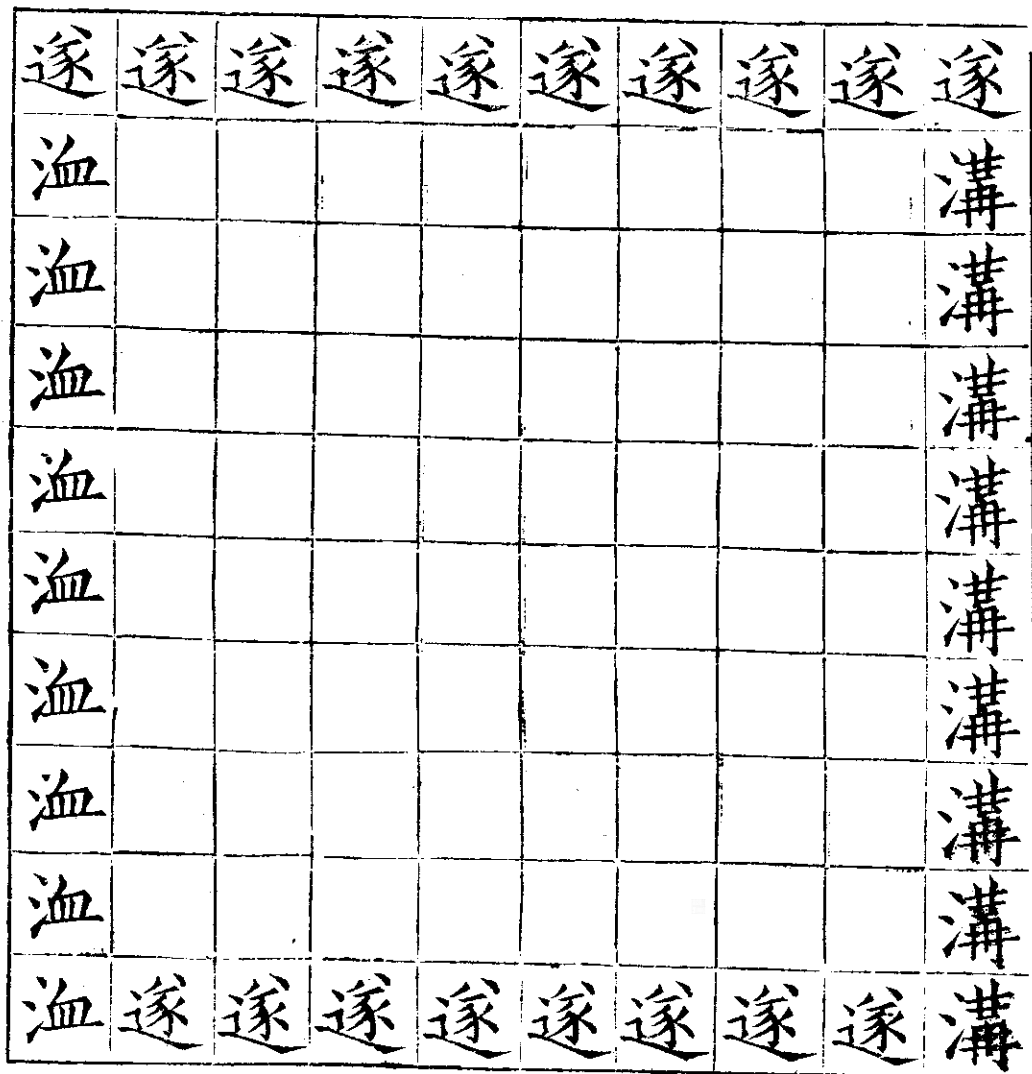 遂 遂 遂 遂 遂 遂 遂 遂 遂 遂
洫 溝
洫 溝
洫 溝
洫 溝
洫 溝
洫 溝
洫 溝
洫 溝
洫 遂 遂 遂 遂 遂 遂 遂 遂 溝